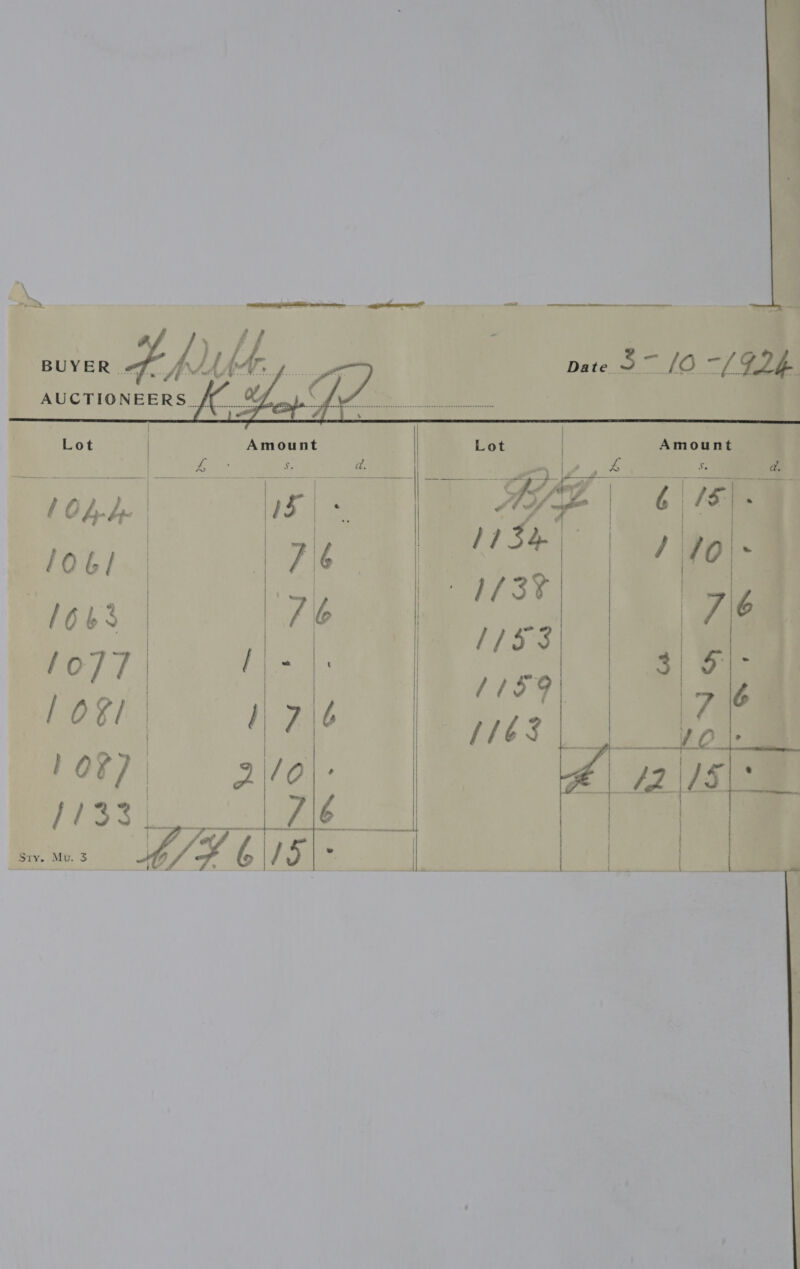 BUYER
Date 3-10-1924
AUCTIONEERS K. F. & R
Lot Amount Lot Amount
£ s. d. £ s. d.
1044 15 -
1061 7 6
1063 7 6
1077 1 - -
1081 1 7 6
1087 2 10 -
1133 7 6
C/F 6 15 -
Sty. Mu. 3
B/F 6 15 -
1134 1 10 -
1138 7 6
1153 3 5 -
1159 7 6
1163 10 -
£ 12 15 -